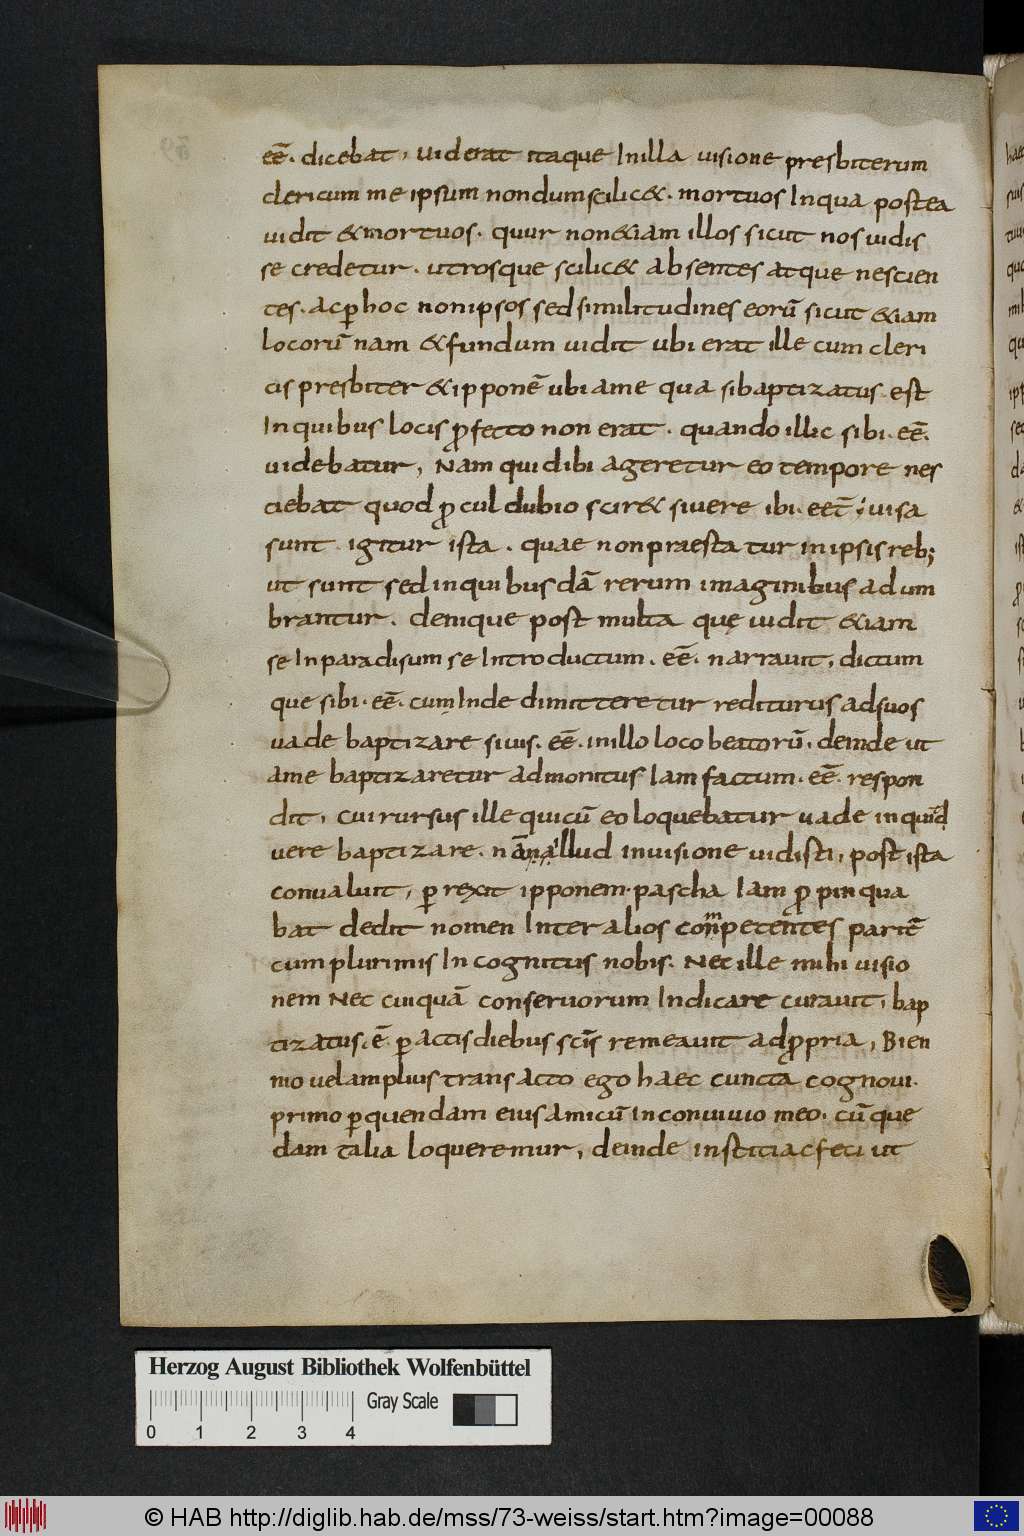 eē. dicebat, uiderat itaque Inilla uisione presbiterum
clericum me ipsum nondumscilic&. mortuos Inqua postea
uidit &mortuos. quur non&iam illos sicut nos uidis
se credetur. utrosque scilic& absentes atque nescien
tes. acp̲hoc nonipsos sedsimilitudines eorū sicut &iam
locorū nam &fundum uidit ubi erat ille cum cleri
cis presbiter &ipponē ubi ame qua sibaptizatus. est
Inquibus locis ꝓfecto non erat. quando illic sibi. eē.
uidebatur, Nam quidibi ageretur eo tempore nes
ciebat quod ꝓcul dubio scir& siuere ibi. eēt; uisa
sunt igitur ista. quae nonpraesta tur inipsis reb;
ut sunt sed inquibusdā rerum imaginibus adum
brantur. denique post multa quę uidit &iam
se Inparadisum se Introductum. eē. narrauit, dictum
que sibi. eē. cum Inde dimitteretur rediturus adsuos
uade baptizare siuis. eē. inillo loco beatorū. deinde ut
ame baptizaretur admonitus Iam factum. eē. respon
dit, cui rursus ille quicū eo loquebatur uade inquid
uere baptizare. nā illud inuisione uidisti, post ista
conualuit, ꝑrexit ipponem. pascha Iam ꝓpinqua
bat dedit nomen Inter alios competentes pariē
cum plurimis Incognitus nobis. Nec ille mihi uisio
nem Nec cuiquā conseruorum Indicare curauit, bap
tizatus. ē. ꝑactisdiebus scīs remeauit adꝓpria, Bien
nio uelamplius transacto ego haec cuncta cognoui.
primo ꝑquendam eius amicū inconuiuio meo. cū que
dam talia loqueremur, deinde institiacfeci ut
Herzog August Bibliothek Wolfenbüttel
Gray Scale
0 1 2 3 4
© HAB http://diglib.hab.de/mss/73-weiss/start.htm?image=00088